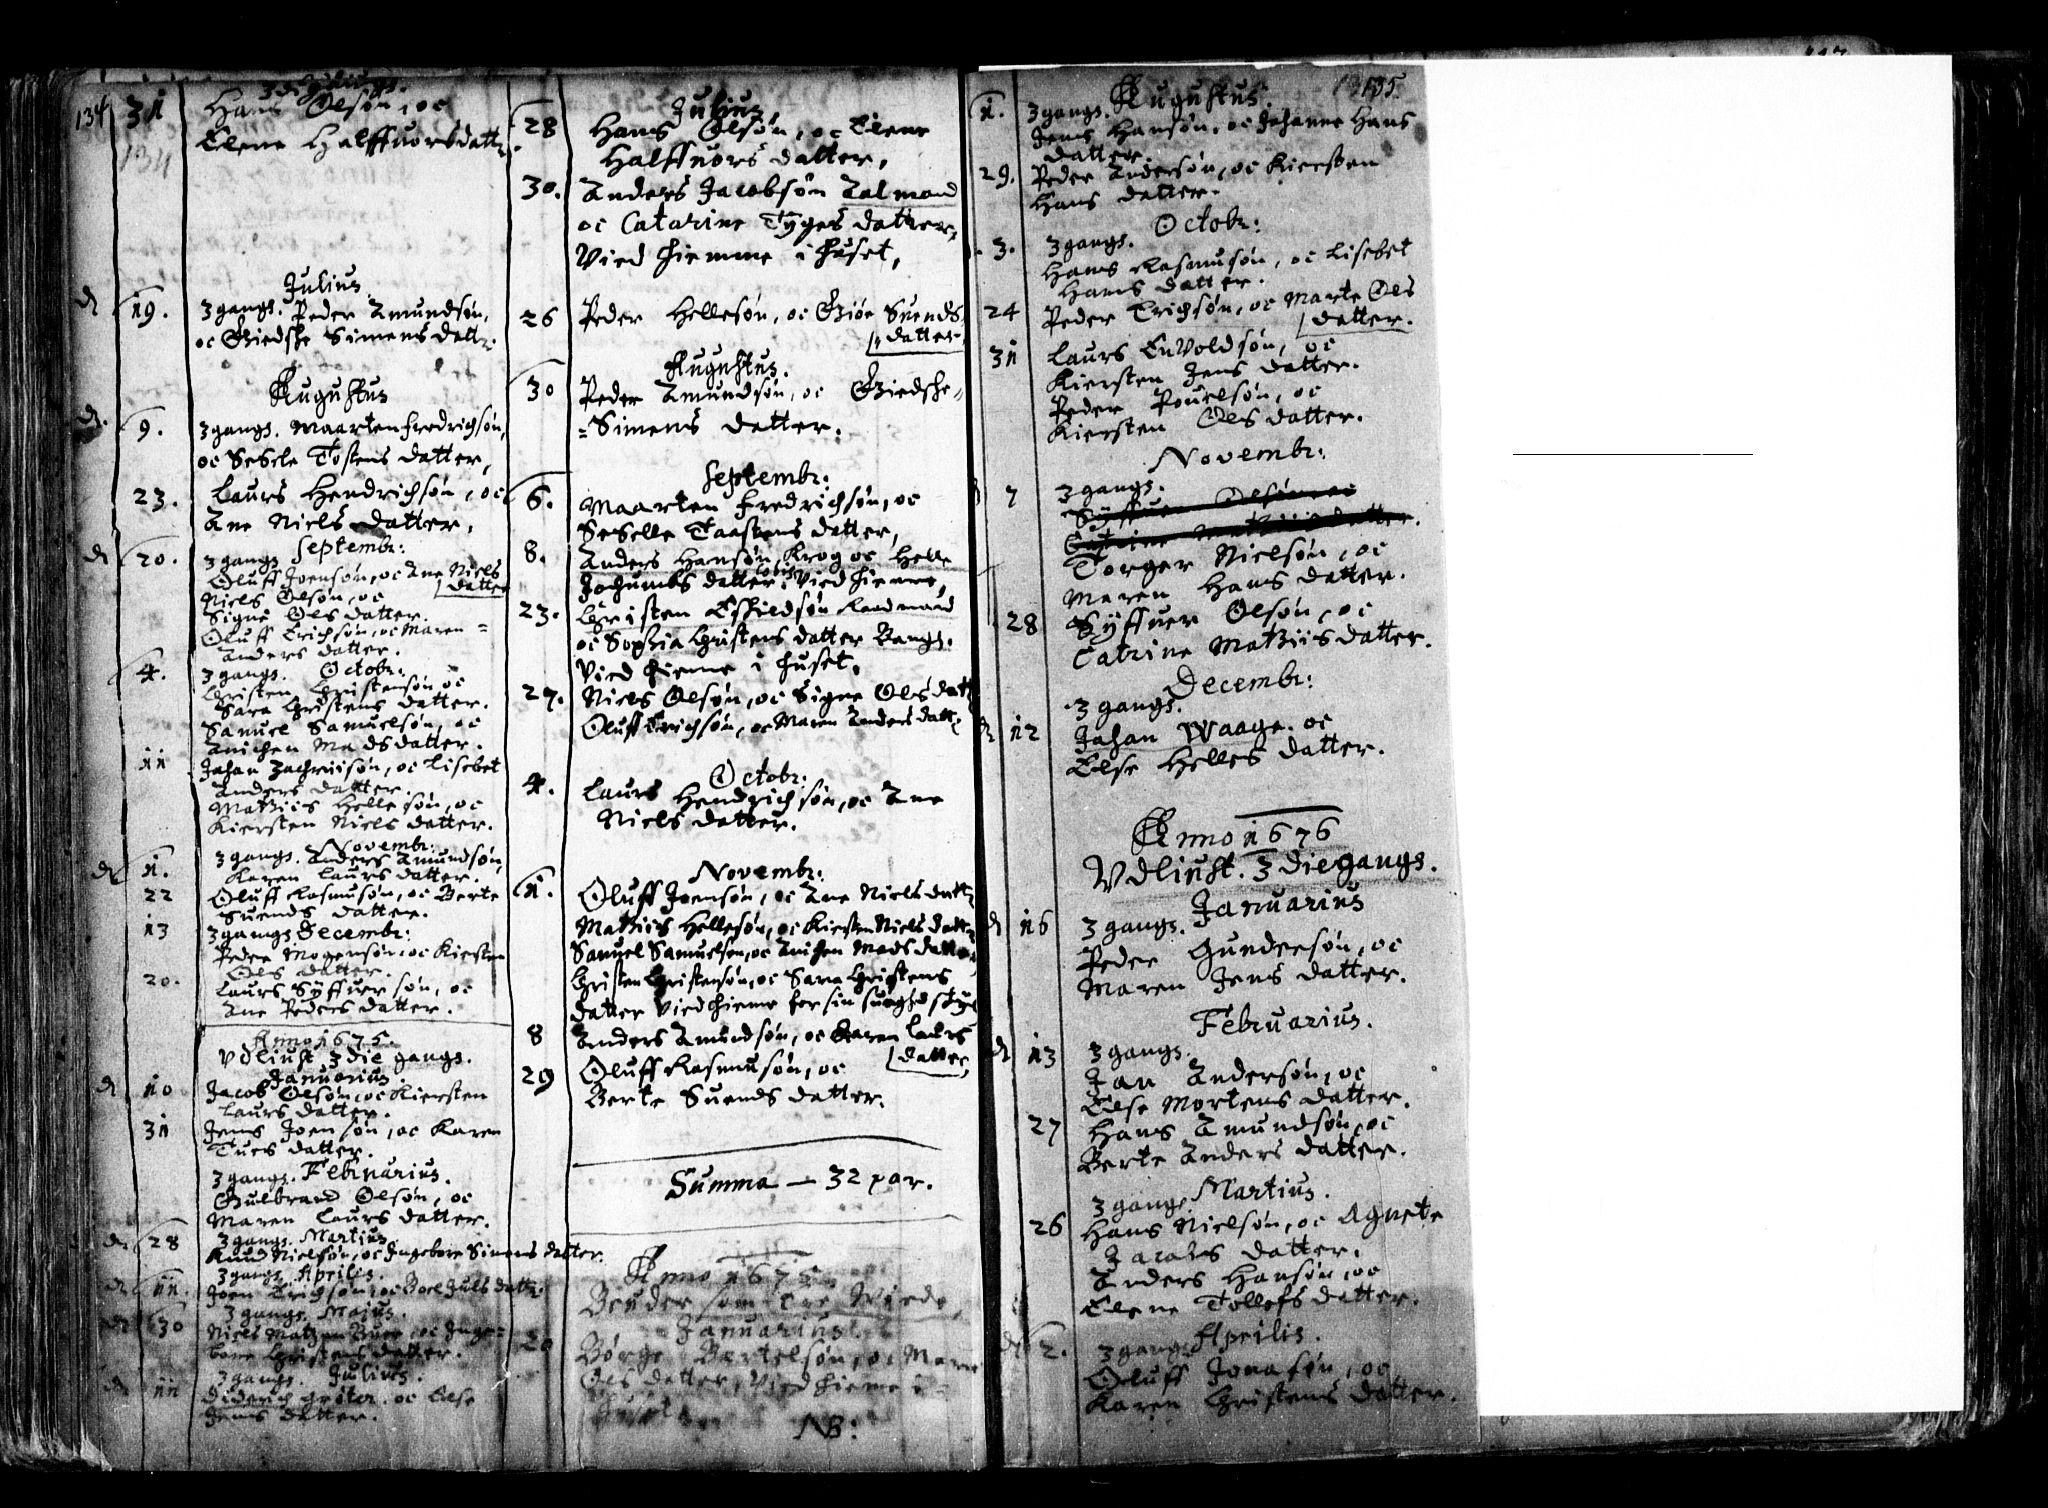 134
134
31
Hans Olsøn, oc
Elene Halffuorsdatt
Julius
19.
3 gangs. Peder Amundsøn,
oc Giedske Simens datt
Augustus
9.
3 gangs. Maarten Fredrichsøn,
oc Sesele Tostens datter,
23.
Laurs Hendrichsøn, oc
Ane Niels datter,
Septembr:
20.
3 gangs
Oluff Joensøn, oc Ane Niels
datter
Niels Olsøn, oc
Signe Ols datter.
Oluff Erichsøn, oc Maren =
Anders datter.
4.
3 gangs. Octobr:
Christen Christensøn oc
Sara Christens datter.
Samuel Samuelsøn, oc
Anichen Mads datter.
11
Johan Zachriisøn, oc Lisebet
Anders datter.
Mathiis Hellesøn, oc
Kiersten Niels datter.
Novembr:
1.
3 gangs. Anders Amundsøn,
Karen Laurs datter.
22
Oluff Rasmusøn, oc Berte
Suends datter.
13
3 gangs Decembr:
Peder Mogensøn, oc Kiersten
Ols datter.
20.
Laurs Syffuersøn, oc
Ane Peders datter.
Anno 1675.
Vdliust 3 die gangs.
Januarius
10
Jacob Olsøn, oc Kiersten
Laurs datter.
31
Jens Joensøn, oc Karen
Tues datter.
3 gangs. Februarius.
Gulbrand Olsøn, oc
Maren Laurs datter.
28
3 gangs. Martius.
Knud Nielsøn, oc Ingebore Simens datter.
3 gangs Aprilis.
11.
Joen Erichsøn, oc Boel Juls datt
3 gangs. Maius.
30
Niels Matzen Buer, oc Inge=
bore Christens datter.
3 gangs. Julius.
11
Diderich Gröter. oc Else
Jens datter.
Julius,
28
Hans Olsøn, oc Elene
Halffuors datter,
30.
Anders Jacobsøn Aalmand
oc Catarine Tyges datter,
Vied hiemme i huset,
26
Peder Hellesøn, oc Giøe Suends
datter
Augustus.
30
Peder Amundsøn, oc Giedske =
= Simens datter.
Septembr:
6.
Maarten Fredrichsøn, oc
Seselle Taastens datter,
8.
Anders Hansøn Krog oc Helle
Jochumbs datter, Vied hiemme,
23.
Christen Eskildsøn Raadmand
oc Sophia Christens datter Bangs.
Vied hieme i huset,
27.
Niels Olsøn, oc Signe Ols datt
Oluff Erichsøn, oc Maren Anders datt
Octobr:
4.
Laurs Hendrichsøn, oc Ane
Niels datter.
Novembr:
1.
Oluff Joensøn, oc Ane Niels datt
Mathiis Hellesøn, oc Kiersten Niels datt
Samuel Samuelsøn, oc Anichen Mads datter,
Christen Christensøn, oc Sara Christens
datter Vied hieme for sin suaghed skyl
8
Anders Amundsøn, oc Karen Laurs
datter,
29
Oluff Rasmusøn, oc
Berte Suends datter.
Summa — 32 par.
Anno 1675
Bender som ere Viede,
Januarius
20
Børge Bertelsøn, oc Maren
Ols datter, Vied hieme i =
huset
NB:
135.
1.
3 gangs. Augustus.
Jens Hansøn, oc Johanne Hans
datter.
29.
Peder Andersøn, oc Kiersten
Hans datter.
Octobr:
3.
3 gangs.
Hans Rasmusøn, oc Lisebet
Hans datter.
24
Peder Erichsøn, oc Marte Ols
datter.
31
Laurs Envoldsøn, oc
Kiersten Jens datter.
Peder Pouelsøn, oc
Kiersten Ols datter.
Novembr:
7
3 gangs.
Syffuer Olsøn, oc
Catrine Mathiis datter.
Torger Nielsøn, oc
Maren Hans datter.
28
Syffuer Olsøn, oc
Catrine Mathiis datter.
Decembr:
3 gangs.
12
Johan Waage. oc
Else Helles datter.
Anno 1676
Vdliust. 3 die gangs.
Januarius
16
3 gangs.
Peder Gundersøn, oc
Maren Jens datter.
Februarius.
13
3 gangs.
Jan Andersøn, oc
Else Mortens datter.
27
Hans Amundsøn, oc
Berte Anders datter.
Martius.
3 gangs
26
Hans Nielsøn, oc Agnete
Jacobs datter.
Anders Hansøn, oc
Elene Tollefs datter.
Aprilis.
2.
3 gangs
Oluff Jonasøn, oc
Karen Christens datter.